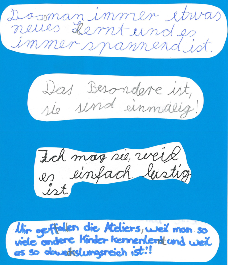 Dass man immer etwas
neues lernt und es
immer spannend ist.
Das Besondere ist,
sie sind einmalig!
Ich mag sie, weil
es einfach lustig
ist
Mir gefallen die Ateliers, weil man so
viele andere Kinder kennenlernt und weil
es so abwekslungsreich ist!!